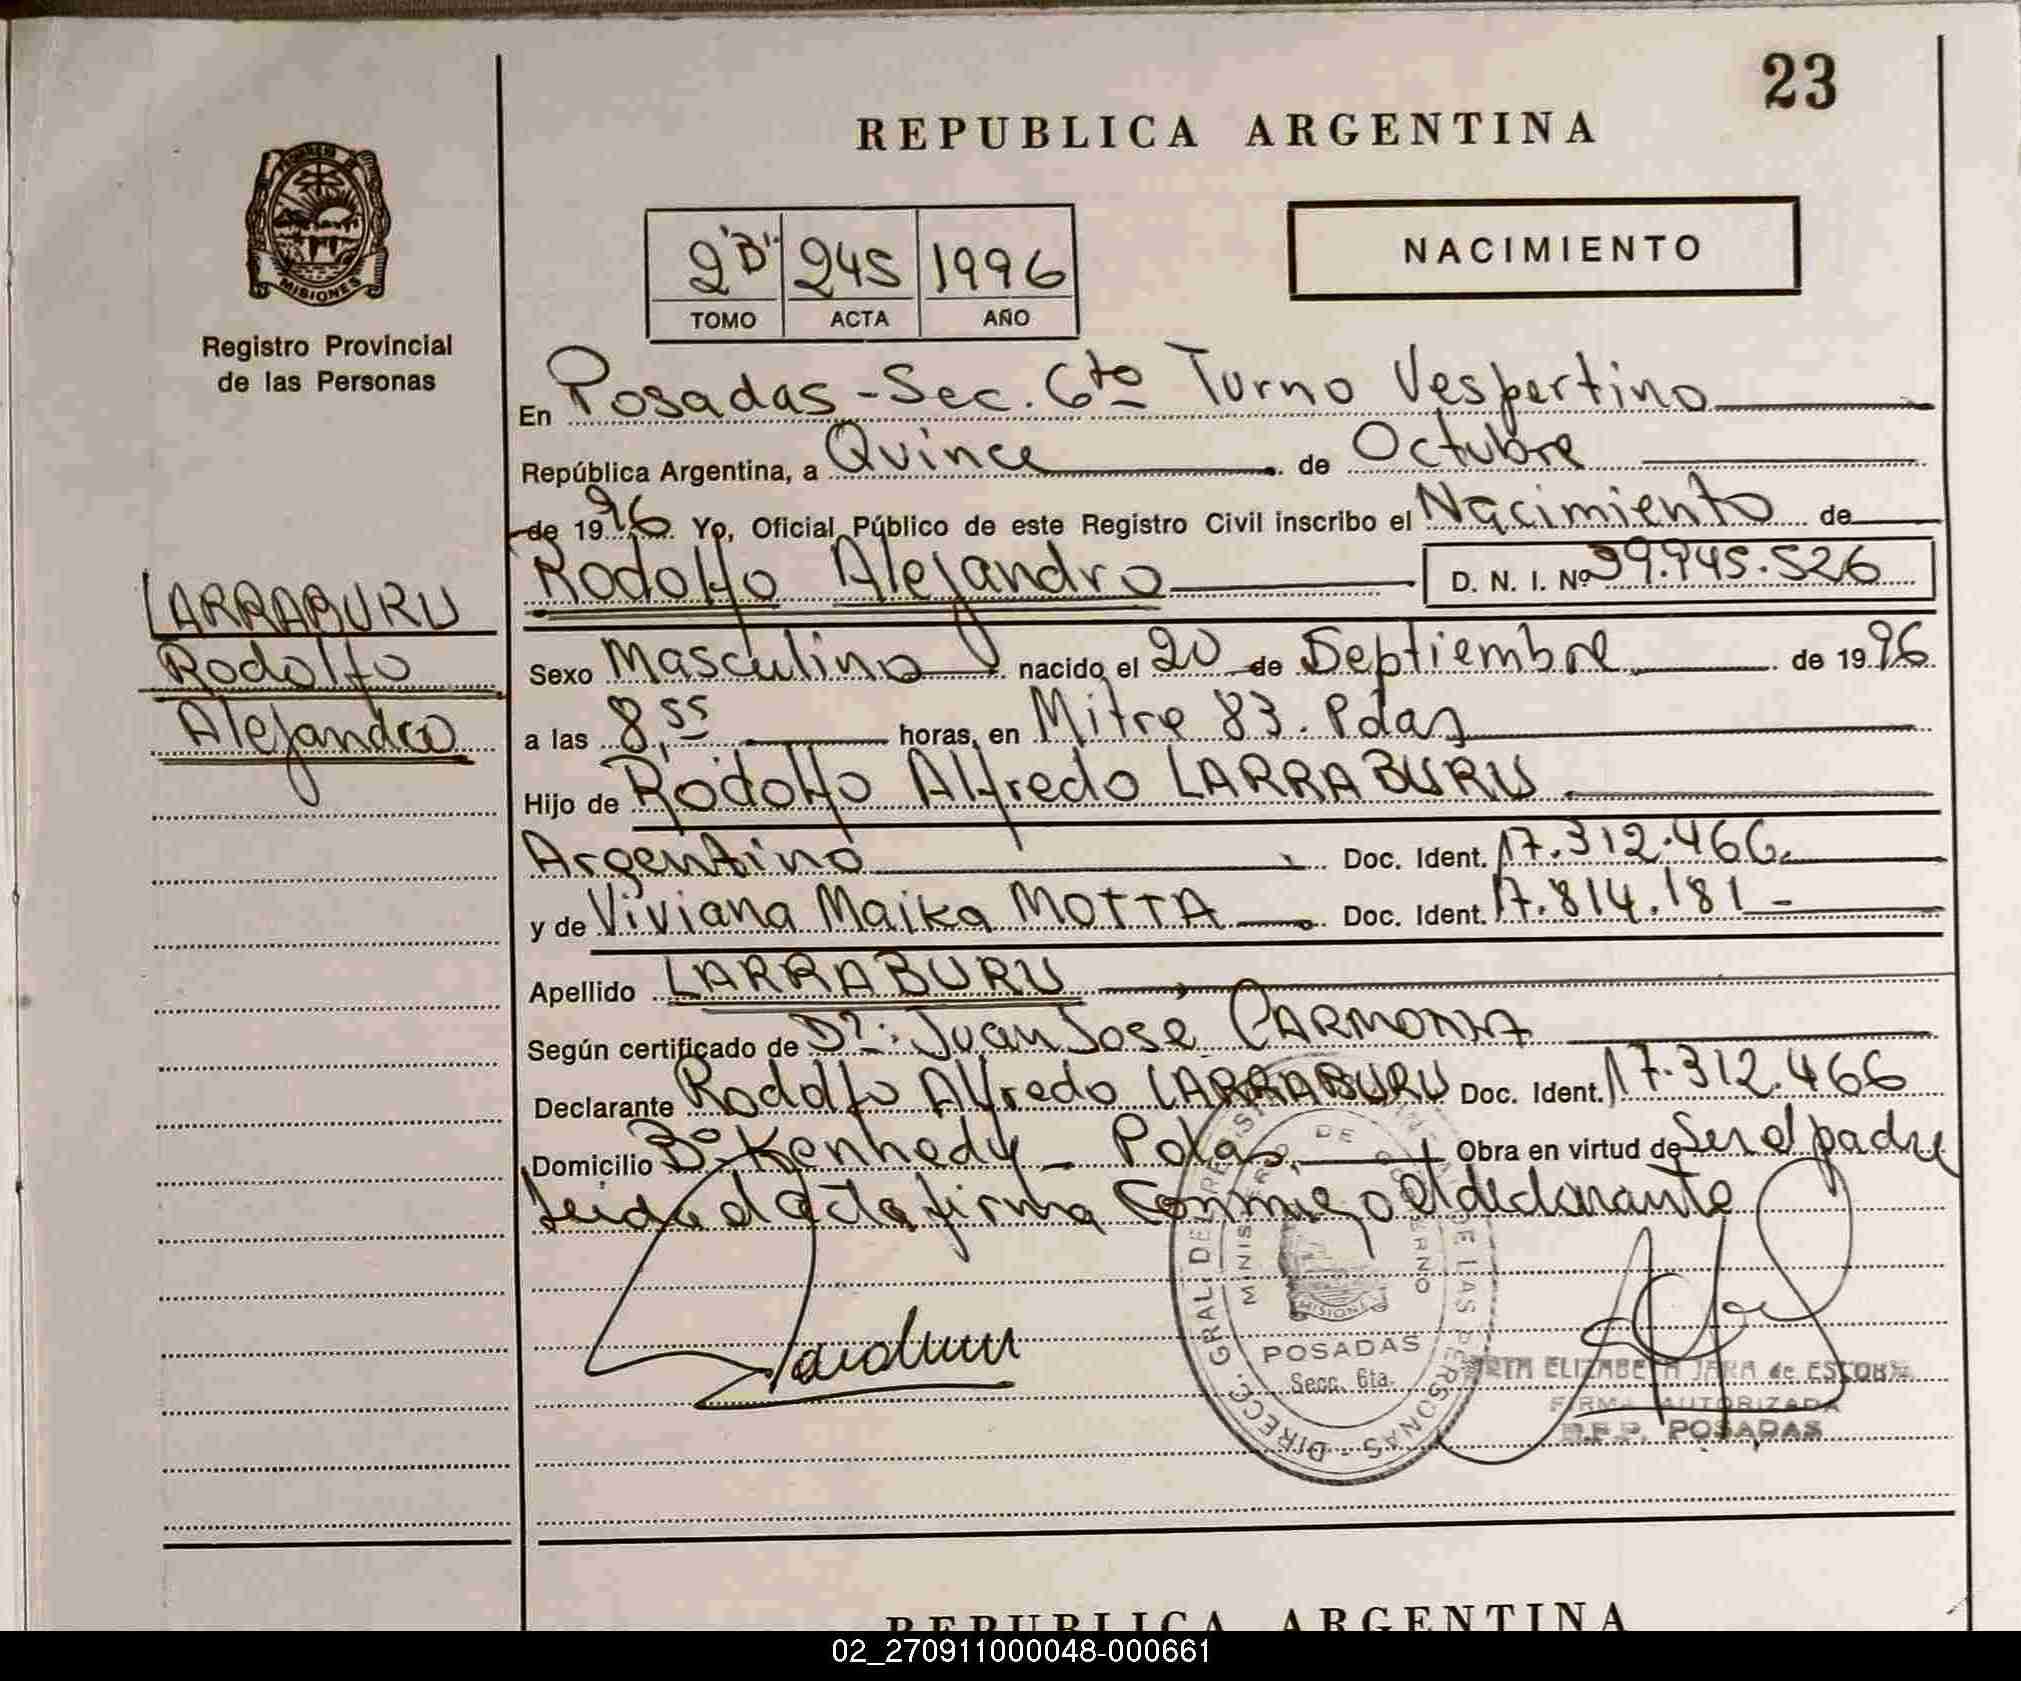 23
REPUBLICA ARGENTINA
MISIONES
Registro Provincial
de las Personas
2 "B" 245 1996
TOMO ACTA AÑO
NACIMIENTO
En Posadas - Sec. 6to Turno Vespertino
República Argentina, a Quince de Octubre
de 1996 Yo, Oficial Público de este Registro Civil inscribo el Nacimiento de
Rodolfo Alejandro D. N. I. Nº 39.945.526
LARRABURU
Rodolfo
Alejandro
Sexo Masculino nacido el 20 de Septiembre de 1996
a las 8,55 horas, en Mitre 83. Pdas
Hijo de Rodolfo Alfredo LARRABURU
Argentino Doc. Ident. 17.312.466
y de Viviana Maika MOTTA Doc. Ident. 17.814.181 -
Apellido LARRABURU
Según certificado de Dr: Juan José CARMONA
Declarante Rodolfo Alfredo LARRABURU Doc. Ident. 17.312.466
Domicilio Bº Kennedy - Pdas, Obra en virtud de Ser el padre
Leida el acta firma conmigo el declarante
DIRECC. GRAL DE REGIST DE LAS PERSONAS
MINIS DE GOBIERNO
MISIONES
POSADAS
Secc. 6ta.
ELIZABETH JARA de ESCOBAR
FIRMA AUTORIZADA
POSADAS
REPUBLICA ARGENTINA
02_270911000048-000661